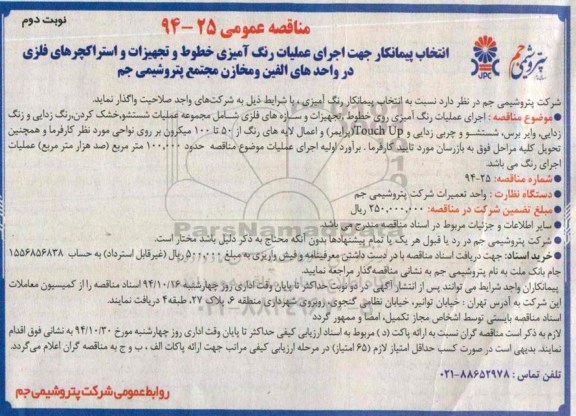 نوبت دوم
مناقصه عمومی ۲۵-۹۴
پتروشیمی جم
JPC
انتخاب پیمانکار جهت اجرای عملیات رنگ آمیزی خطوط و تجهیزات و استراکچرهای فلزی
در واحد های الفین ومخازن مجتمع پتروشیمی جم
شرکت پتروشیمی جم در نظر دارد نسبت به انتخاب پیمانکار رنگ آمیزی ، با شرایط ذیل به شرکت‌های واجد صلاحیت واگذار نماید.
● موضوع مناقصه : اجرای عملیات رنگ آمیزی روی خطوط ,تجهیزات و سازه های فلزی شامل مجموعه عملیات شستشو,خشک کردن,رنگ زدایی و زنگ
زدایی، وایر برس، شستشو و چربی زدایی و Touch Up(پرایمر) و اعمال لایه های رنگ از ۵۰ تا ۱۰۰ میکرون بر روی نواحی مورد نظر کارفرما و همچنین
تحویل کلیه مراحل فوق به بازرسان مورد تایید کارفرما . برآورد اولیه اجرای عملیات موضوع مناقصه حدود ۱۰۰,۰۰۰ متر مربع (صد هزار متر مربع) عملیات
اجرای رنگ می باشد.
● شماره مناقصه: ۲۵-۹۴
● دستگاه نظارت : واحد تعمیرات شرکت پتروشیمی جم
● مبلغ تضمین شرکت در مناقصه: ۲۵۰,۰۰۰,۰۰۰ ریال
● سایر اطلاعات و جزئیات مربوط در اسناد مناقصه مندرج می باشد
● شرکت پتروشیمی جم در رد یا قبول هر یک یا تمام پیشنهادها بدون آنکه محتاج به ذکر دلیل باشد مختار است.
● خرید اسناد: جهت دریافت اسناد مناقصه با در دست داشتن معرفینامه و فیش واریزی به مبلغ ۵۰۰,۰۰۰ ریال (غیرقابل استرداد) به حساب ۱۵۵۶۸۵۶۸۳۸
جام بانک ملت به نام پتروشیمی جم به نشانی مناقصه‌گذار مراجعه نمایید.
پیمانکاران واجد شرایط می توانند پس از انتشار آگهی در دو نوبت حداکثر تا پایان وقت اداری روز چهارشنبه ۹۴/۱۰/۱۶ اسناد مناقصه را از کمیسیون معاملات
این شرکت به آدرس تهران : خیابان توانیر، خیابان نظامی گنجوی، روبروی شهرداری منطقه ۶، پلاک ۲۷، طبقه ۴ دریافت نمایند.
اسناد مناقصه بایستی توسط اشخاص مجاز تکمیل، امضا و ممهور گردد
لازم به ذکر است مناقصه گران نسبت به ارائه پاکات (د ) مربوط به اسناد ارزیابی کیفی حداکثر تا پایان وقت اداری روز چهارشنبه مورخ ۹۴/۱۰/۳۰ به نشانی فوق اقدام
نمایند. بدیهی است در صورت کسب حداقل امتیاز لازم (۶۵ امتیاز) در مرحله ارزیابی کیفی مراتب جهت ارائه پاکات الف ، ب و ج به مناقصه گران اعلام می‌گردد.
تلفن تماس : ۸۸۶۵۲۹۷۸-۰۲۱
روابط عمومی شرکت پتروشیمی جم